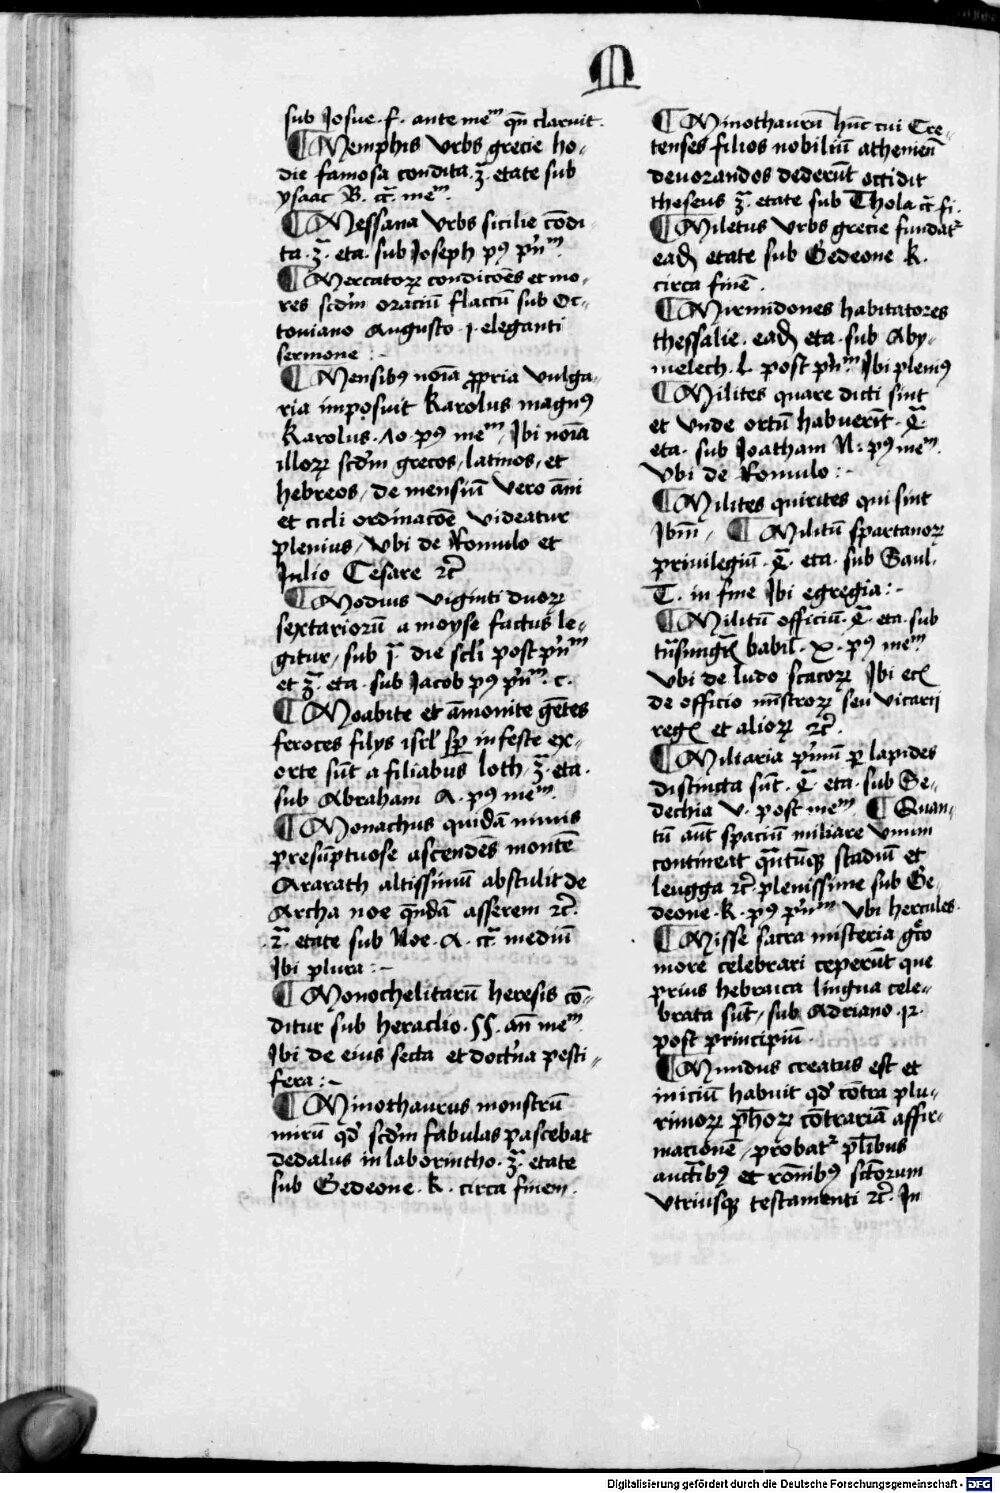 M
sub Josue · f · ante meᵐ qn̄ claruit ·
¶ Memphis vrbs grecie ho-
die famosa condita · 3ᵃ · etate sub
ysaac B · cᵃ · meᵐ ·
¶ Messana vrbs sicilie cōdi
ta · 3ᵃ · eta · sub Joseph pꝰ pnᵐ ·
¶ Mercatoꝝ condicōes et mo-
res scdm oraciū flaccū sub Oc-
touiano Augusto · i · eleganti
sermone :-
¶ Mensibꝰ noīa ꝓpria vulga-
ria imposuit Karolus magnꝰ
Karolus · Ao · pꝰ meᵐ / Ibi noīa
illoꝝ scdm grecos / latinos / et
hebreos / de mensiū vero āni
et cicli ordinacōe videatur
plenius / Vbi de Romulo et
Julio Cesare ⁊c̄
¶ Modius viginti duoꝝ
sextarioꝝū a moyse factus le-
gitur / sub ıᵃ die scli post pnᵐ
et 3ᵃ · eta · sub Jacob pꝰ pnᵐ · c ·
¶ Moabite et āmonite gētes
feroces filys isrl' sꝑ infeste ex-
orte sūt a filiabus loth · 3ᵃ · eta ·
sub Abraham A · pꝰ meᵐ ·
¶ Monachus quidā nimis
presūptuose ascendēs montē
Ararath altissimū abstulit de
Archa noe qndā asserem ⁊c̄ ·
2ᵃ · etate sub Noe · A · cᵃ mediū
Ibi plura :-
¶ Monochelitarū heresis cō-
ditur sub heraclio · SS · an̄ meᵐ
Ibi de eius secta et doctna pesti-
fera :-
¶ Minothaurus monstrū
mirū qd scdm fabulas pascebat
dedalus in laborintho · 3ᵃ · etate
sub Gedeone · K · circa finem ·
¶ Minothaurū hūc cui Cre-
tenses filios nobiliū athenien̄
deuorandos dederūt occidit
theseus 3ᵃ · etate sub Thola cᵃ fi ·
¶ Miletus vrbs grecie fundatᷣ
eadꝫ etate sub Gedeone K ·
circa finē ·
¶ Mirmidones habitatores
thessalie · eadꝫ eta · sub Aby-
melech · L · post pnᵐ · Ibi pleniꝰ
¶ Milites quare dicti sint
et vnde ortū habuerīt · 4ᵃ ·
eta · sub Joatham N · pꝰ meᵐ ·
Vbi de Romulo :-
¶ Milites quirites qui sint
Ibm̄ / ¶ Militū spartanoꝝ
priuilegiū · 4ᵃ · eta · sub Saul ·
T · in fine Ibi egregia :-
¶ Militū officiū · 4ᵃ · eta · sub
babil · X · pꝰ meᵐ ·
Vbi de ludo scacoꝝ Ibi ecꝭ
de officio mīstroꝝ seu vicarij
regꝭ et alioꝝ ⁊c̄ ·
¶ Miliaria pmū ꝑ lapides
distincta sūt · 4ᵃ · eta · sub Se-
dechia V · post meᵐ ¶ Quan-
tū aūt spaciū miliare vnum
contineat qntūqꝫ stadiū et
leugga ⁊c̄ · plenissime sub Ge-
deone · K · pꝰ pnᵐ Vbi hercules ·
¶ Misse sacra misteria gco
more celebrari ceperūt que
prius hebraica lingua cele-
brata sūt / sub Adriano · 12 ·
post principiū ·
¶ Mundus creatus est et
iniciū habuit qd cōtra plu-
rimoꝝ ph̄oꝝ cōtrariā affir-
macionē / probatᷣ pl̄ibus
auctbꝰ et rōnibꝰ sctorum
vtriusqꝫ testamenti ⁊c̄ · In
Digitalisierung gefördert durch die Deutsche Forschungsgemeinschaft - DFG